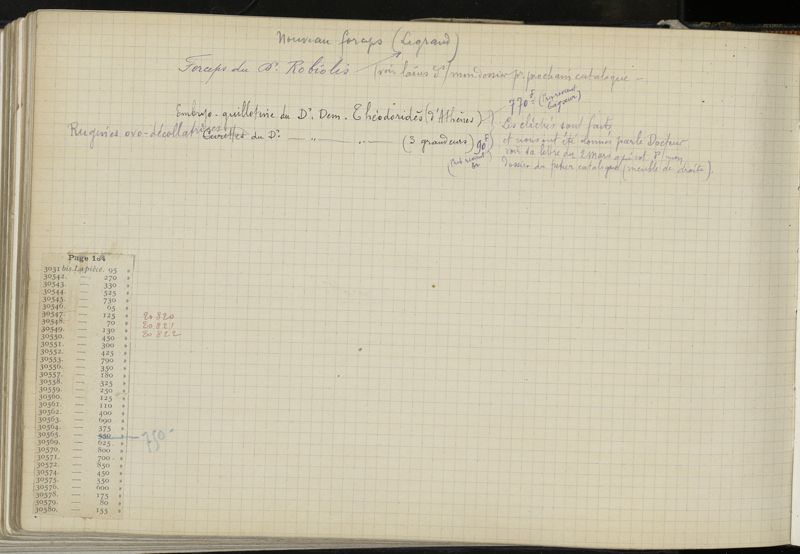 Nouveau forceps (Legrand)
Forceps du Dr. Robiolis (voir laïus ds mon dossier pr. prochain catalogue —
Embryo-guillotine du Dr. Dem. Théodoridès (d'Athènes)
770f
Rugines ovo-décollatrices
Curettes du Dr. — .. — .. — (3 grandeurs)
90f
Les clichés sont faits
et nous ont été donnés par le Docteur
voir sa lettre du 2 mars qui est ds mon
dossier du futur catalogue (meuble de droite).
Page 164
3031 bis La pièce. 95 »
30542. — 270 »
30543. — 330 »
30544. — 525 »
30545. — 730 »
30546. — 65 »
30547. — 125 » 20820
30548. — 70 » 20821
30549. — 130 » 20822
30550. — 450 »
30551. — 300 »
30552. — 425 »
30553. — 700 »
30556. — 350 »
30557. — 180 »
30558. — 325 »
30559. — 250 »
30560. — 125 »
30561. — 110 »
30562. — 400 »
30563. — 690 »
30564. — 375 »
30565. — 550 » 750 -
30569. — 625 »
30570. — 800 »
30571. — 700 »
30572. — 850 »
30574. — 450 »
30575. — 550 »
30576. — 600 »
30578. — 175 »
30579. — 80 »
30580. — 155 »